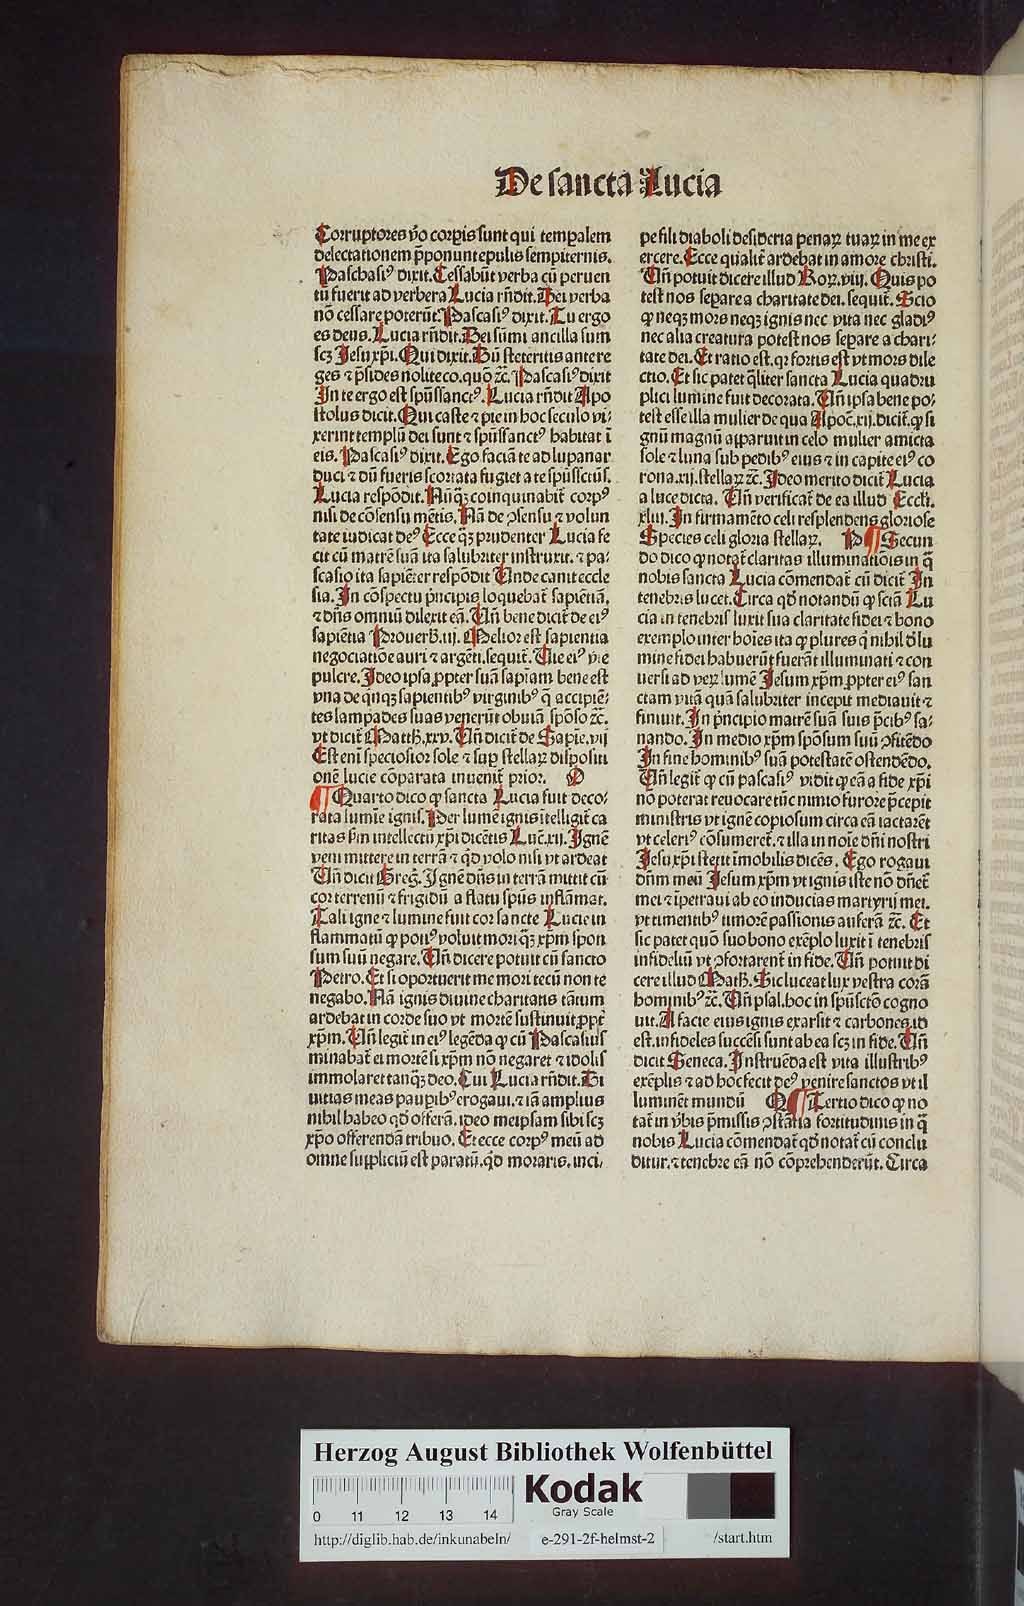 De sancta Lucia
Corruptores v̄o corꝑis sunt qui temꝑalem
delectationem p̄ponunt epulis sempiternis.
Paschasiꝰ dixit. Cessabūt verba cū peruen
tū fuerit ad verbera Lucia rn̄dit. Dei verba
nō cessare poterūt. Pascasiꝰ dixit. Tu ergo
es deus. Lucia rn̄dit. Dei sūmi ancilla sum
scꝫ Jesu xp̄i. Qui dixit. Dū steteritis ante re
ges ⁊ p̄sides nolite co. quō ⁊c̄. Pascasiꝰ dixit
In te ergo est spūssanctꝰ. Lucia rn̄dit Apo
stolus dicit. Qui caste ⁊ pie in hoc seculo vi⸗
xerint templū dei sunt ⁊ spūssanctꝰ habitat ī
eis. Pascasiꝰ dixit. Ego faciā te ad lupanar
duci ⁊ dū fueris scortata fugiet a te spūssctūs.
Lucia respōdit. Nūqꝫ coinquinabit̄ corpꝰ
nisi de cōsensu mētis. Nā de ꝯsensu ⁊ volun
tate iudicat deꝰ Ecce qꝫ prudenter Lucia fe
cit cū matrē suā ita salubriter instruxit. ⁊ pa⸗
scasio ita sapiēter respōdit Unde canit eccle
sia. In cōspectu p̄ncipis loquebat̄ sapiētiā.
⁊ dn̄s omniū dilexit eā. Un̄ bene dicit̄ de eiꝰ
sapiētia Prouerb̄. iij. Melior est sapientia
negociatiōe auri ⁊ argēti. sequit̄. Uie eiꝰ vie
pulcre. Ideo ipsa ꝓpter suā sapīam bene est
vna de qn̄qꝫ sapientibꝰ virginibꝰ q̄ accipiē⸗
tes lampades suas venerūt obuiā spōso ⁊c̄.
vt dicit̄ Matth̄. xxv. Un̄ dicit̄ de Sapīe. vij
Est eni speciosior sole ⁊ suꝑ stellaꝝ dispositi
onē lucie cōparata inuenit̄ prior. O
¶ Quarto dico ꝙ sancta Lucia fuit deco⸗
rata lumīe ignis. Per lumē ignis ītelligit̄ ca
ritas ẜm intellectū xp̄i dicētis Luc̄. xij. Ignē
veni mittere in terrā ⁊ qd̄ volo nisi vt ardeat
Un̄ dicit Greg̃. Ignē dn̄s in terrā mittit cū
cor terrenū ⁊ frigidū a flatu spūs inflāmat.
Tali igne ⁊ lumine fuit cor sancte Lucie in
flammatū ꝙ potiꝰ voluit mori qꝫ xp̄m spon
sum suū negare. Un̄ dicere potuit cū sancto
Petro. Et si oportuerit me mori tecū non te
negabo. Nā ignis diuine charitatis tātum
ardebat in corde suo vt mortē sustinuit ꝓpt̄
xp̄m. Un̄ legit̄ in eiꝰ legēda ꝙ cū Pascasius
minabat̄ ei mortē si xp̄m nō negaret ⁊ idolis
immolaret tanqꝫ deo. Cui Lucia rn̄dit. Di
uitias meas pauꝑibꝰ erogaui. ⁊ iā amplius
nihil habeo qd̄ offerā. ideo meipsam sibi scꝫ
xp̄o offerendā tribuo. Et ecce corpꝰ meū ad
omne suppliciū est paratū. qd̄ moraris. inci⸗
pe fili diaboli desideria penaꝝ tuaꝝ in me ex
ercere. Ecce qualit̄ ardebat in amore christi.
Un̄ potuit dicere illud Roꝝ. viij. Quis po
test nos separe a charitate dei. sequit̄. Scio
ꝙ neqꝫ mors neqꝫ ignis nec vita nec gladiꝰ
nec alia creatura potest nos seꝑare a chari⸗
tate dei. Et ratio est. qꝛ fortis est vt mors dile
ctio. Et sic patet qͣliter sancta Lucia quadru
plici lumine fuit decorata. Un̄ ipsa bene po⸗
test esse illa mulier de qua Apoc̄. xij. dicit̄. ꝙ si
gnū magnū apparuit in celo mulier amicta
sole ⁊ luna sub pedibꝰ eius ⁊ in capite eiꝰ co
rona. xij. stellaꝝ ⁊c̄. Ideo merito dicit̄ Lucia
a luce dicta. Un̄ verificat̄ de ea illud Eccli.
xliij. In firmamēto celi resplendens gloriose
Species celi gloria stellaꝝ. P ¶ Secun
do dico ꝙ notat̄ claritas illuminatiōis in q̄
nobis sancta Lucia cōmendat̄ cū dicit̄ In
tenebris lucet. Circa qd̄ notandū ꝙ sctā Lu
cia in tenebris luxit sua claritate fidei ⁊ bono
exemplo inter hoīes ita ꝙ plures q̄ nihil d̄ lu
mine fidei habuerūt fuerāt illuminati ⁊ con
uersi ad veꝝ lumē Jesum xp̄m ꝓpter eiꝰ san
ctam vitā quā salubriter incepit mediauit ⁊
finiuit. In p̄ncipio matrē suā suis p̄cibꝰ sa⸗
nando. In medio xp̄m spōsum suū ꝯfitēdo
In fine hominibꝰ suā potestatē ostendēdo.
Un̄ legit̄ ꝙ cū pascasiꝰ vidit ꝙ eā a fide xp̄i
nō poterat reuocare tūc nimio furore p̄cepit
ministris vt ignē copiosum circa eā iactarēt
vt celeriꝰ cōsumeret̄. ⁊ illa in noīe dn̄i nostri
Jesu xp̄i stetit īmobilis dicēs. Ego rogaui
dn̄m meū Jesum xp̄m vt ignis iste nō dn̄et̄
mei ⁊ īpetraui ab eo inducias martyrij mei.
vt timentibꝰ timorē passionis auferā ⁊c̄. Et
sic patet quō suo bono exēplo luxit ī tenebris
infideliū vt ꝯfortarent̄ in fide. Un̄ potuit di
cere illud Math̄. Sic luceat lux vestra corā
hominibꝰ ⁊c̄. Un̄ psal. hoc in spūsctō cogno
uit. A facie eius ignis exarsit ⁊ carbones. id
est. infideles succēsi sunt ab ea scꝫ in fide. Un̄
dicit Seneca. Instruēda est vita illustribꝰ
exēplis ⁊ ad hoc fecit deꝰ venire sanctos vt il
luminēt mundū Q ¶ Tertio dico ꝙ no
tat̄ in v̄bis p̄missis ꝯstātia fortitudinis in q̄
nobis Lucia cōmendat̄ qd̄ notat̄ cū conclu
ditur. ⁊ tenebre eā nō cōprehenderūt. Circa
Herzog August Bibliothek Wolfenbüttel
Kodak
Gray Scale
0 11 12 13 14
http://diglib.hab.de/inkunabeln/ e-291-2f-helmst-2 /start.htm